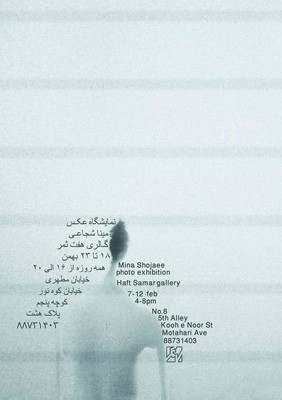 نمایشگاه عکس
مینا شجاعی
گالری هفت ثمر
۱۸ تا ۲۳ بهمن
همه روزه از ۱۶ الی ۲۰
خیابان مطهری
خیابان کوه نور
کوچه پنجم
پلاک هشت
۸۸۷۳۱۴۰۳
Mina Shojaee
photo exhibition
Haft Samar gallery
7-12 feb
4-8pm
No.8
5th Alley
Kooh e Noor St
Motahari Ave
88731403